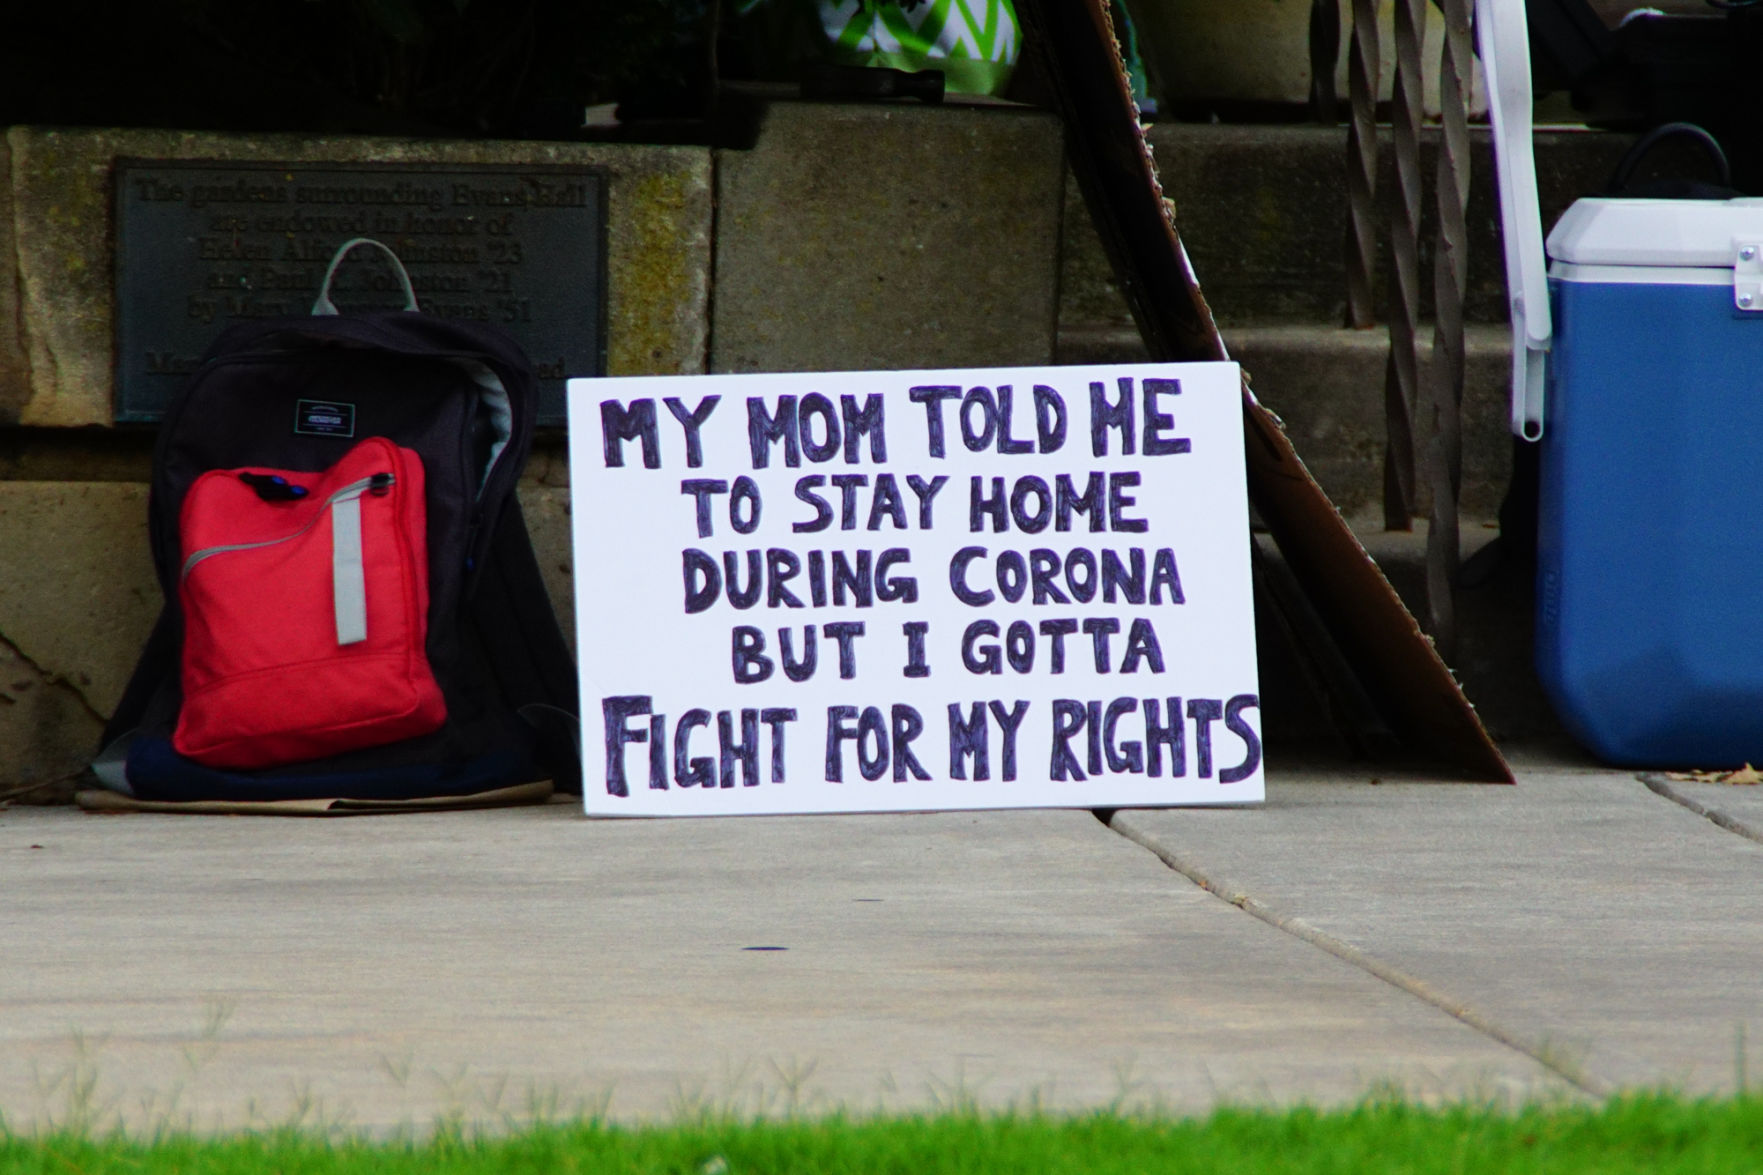 The gardens surrounding Evans Hall
are endowed in honor of
Helen Johnston '23
and Paul Johnston '21
by Mary Evans '51
MY MOM TOLD ME
TO STAY HOME
DURING CORONA
BUT I GOTTA
FIGHT FOR MY RIGHTS